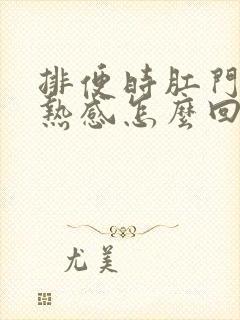 排便時肛門
熱感怎麼回
尤美